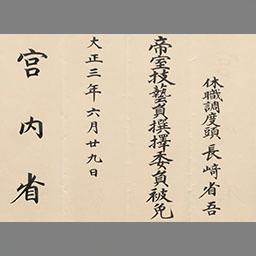 休職調度頭長﨑省吾
帝室技藝員撰擇委員被免
大正三年六月廿九日
宮内省